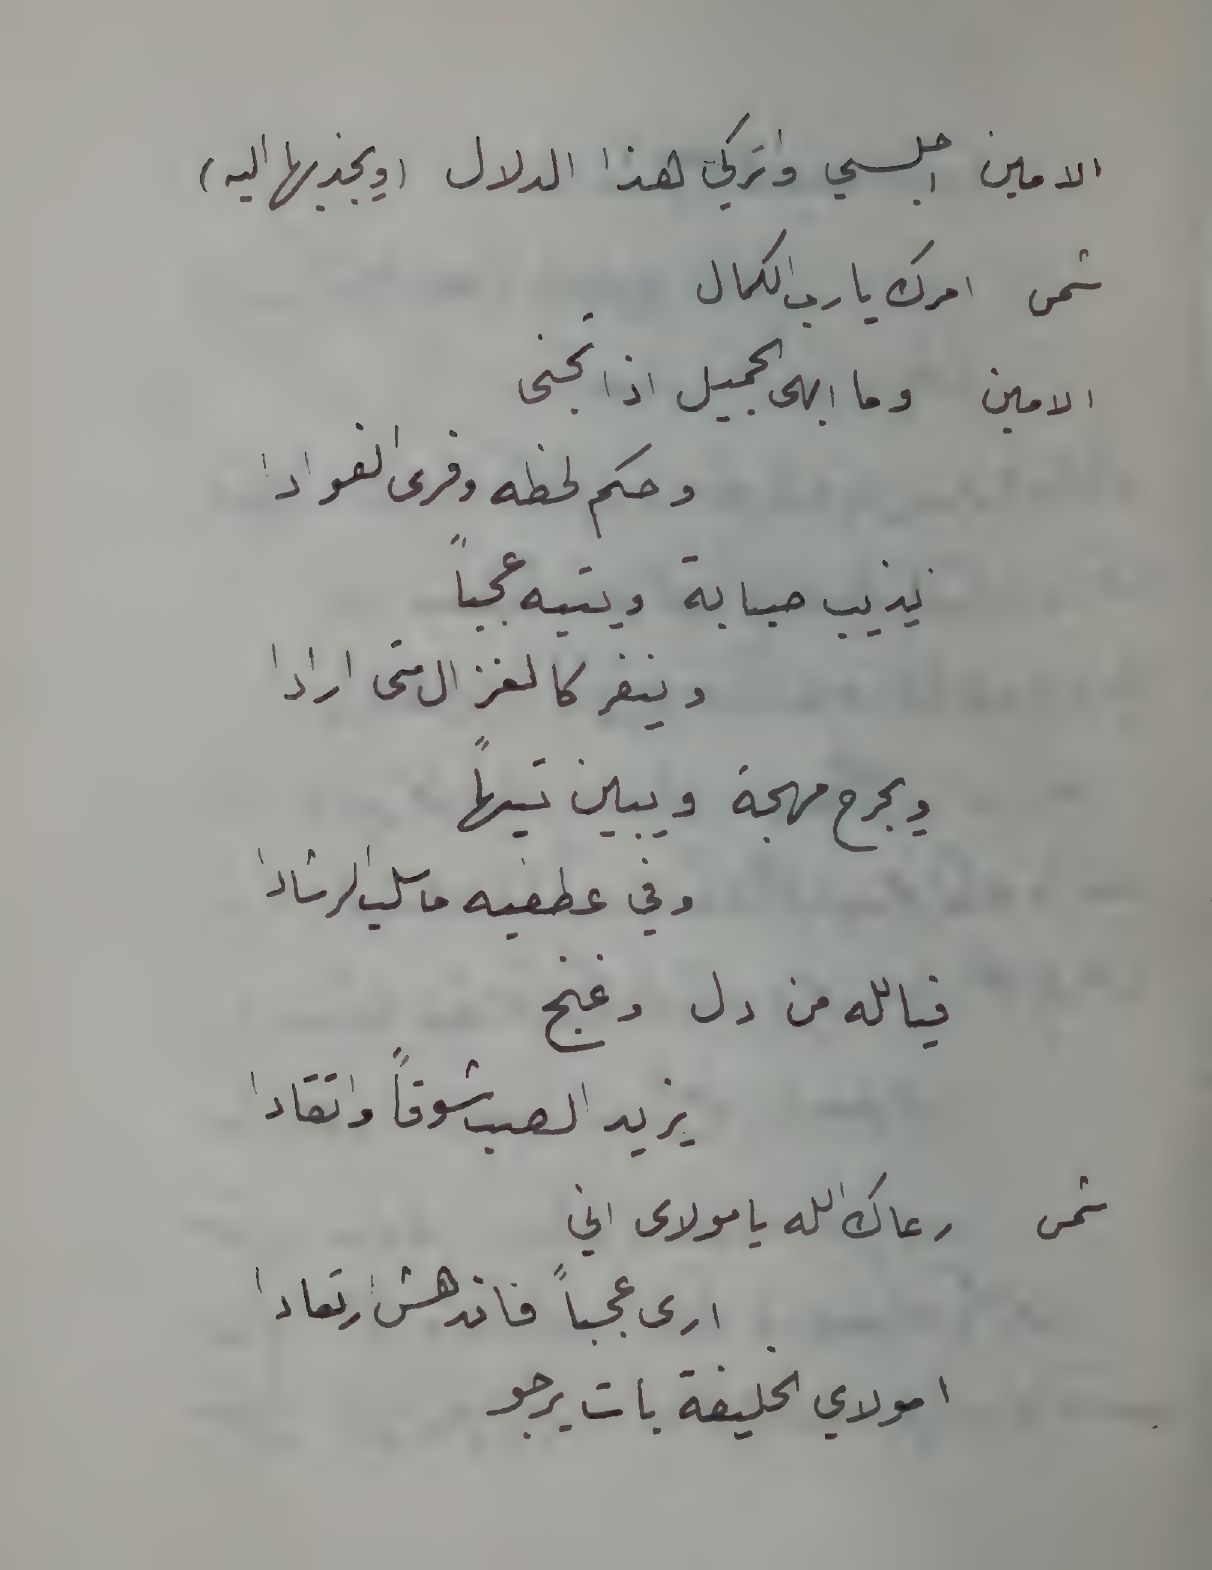 الامين اجلسي واتركي هذا الدلال (ويجذبها اليه)
شمس امرك يا رب الكمال
الامين وما ابهى الجميل اذا تجنى
وحكم لحظه وفرى الفوادا
يذيب صبابة ويتيه عجباً
وينفر كالغزال متى ارادا
ويجرح مهجة ويبين تيهاً
وفي عطفيه ما سلب الرشادا
فيالله من دل وغنج
يزيد الصب شوقاً واتقادا
شمس رعاك الله يا مولاى اني
ارى عجباً فاندهش ارتعادا
امولاي الخليفة بات يرجو